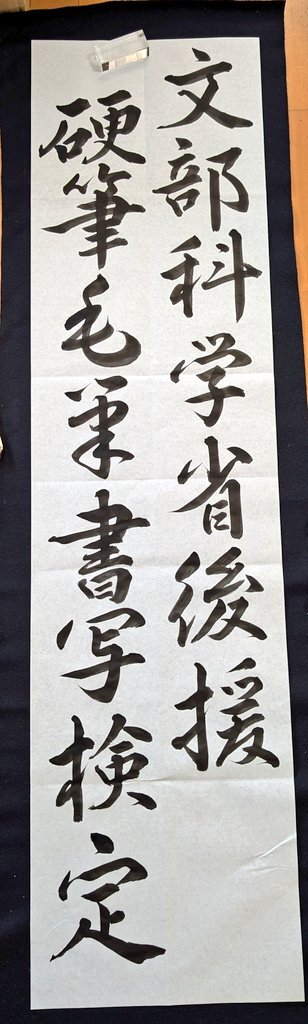 文部科学省後援
硬筆毛筆書写検定